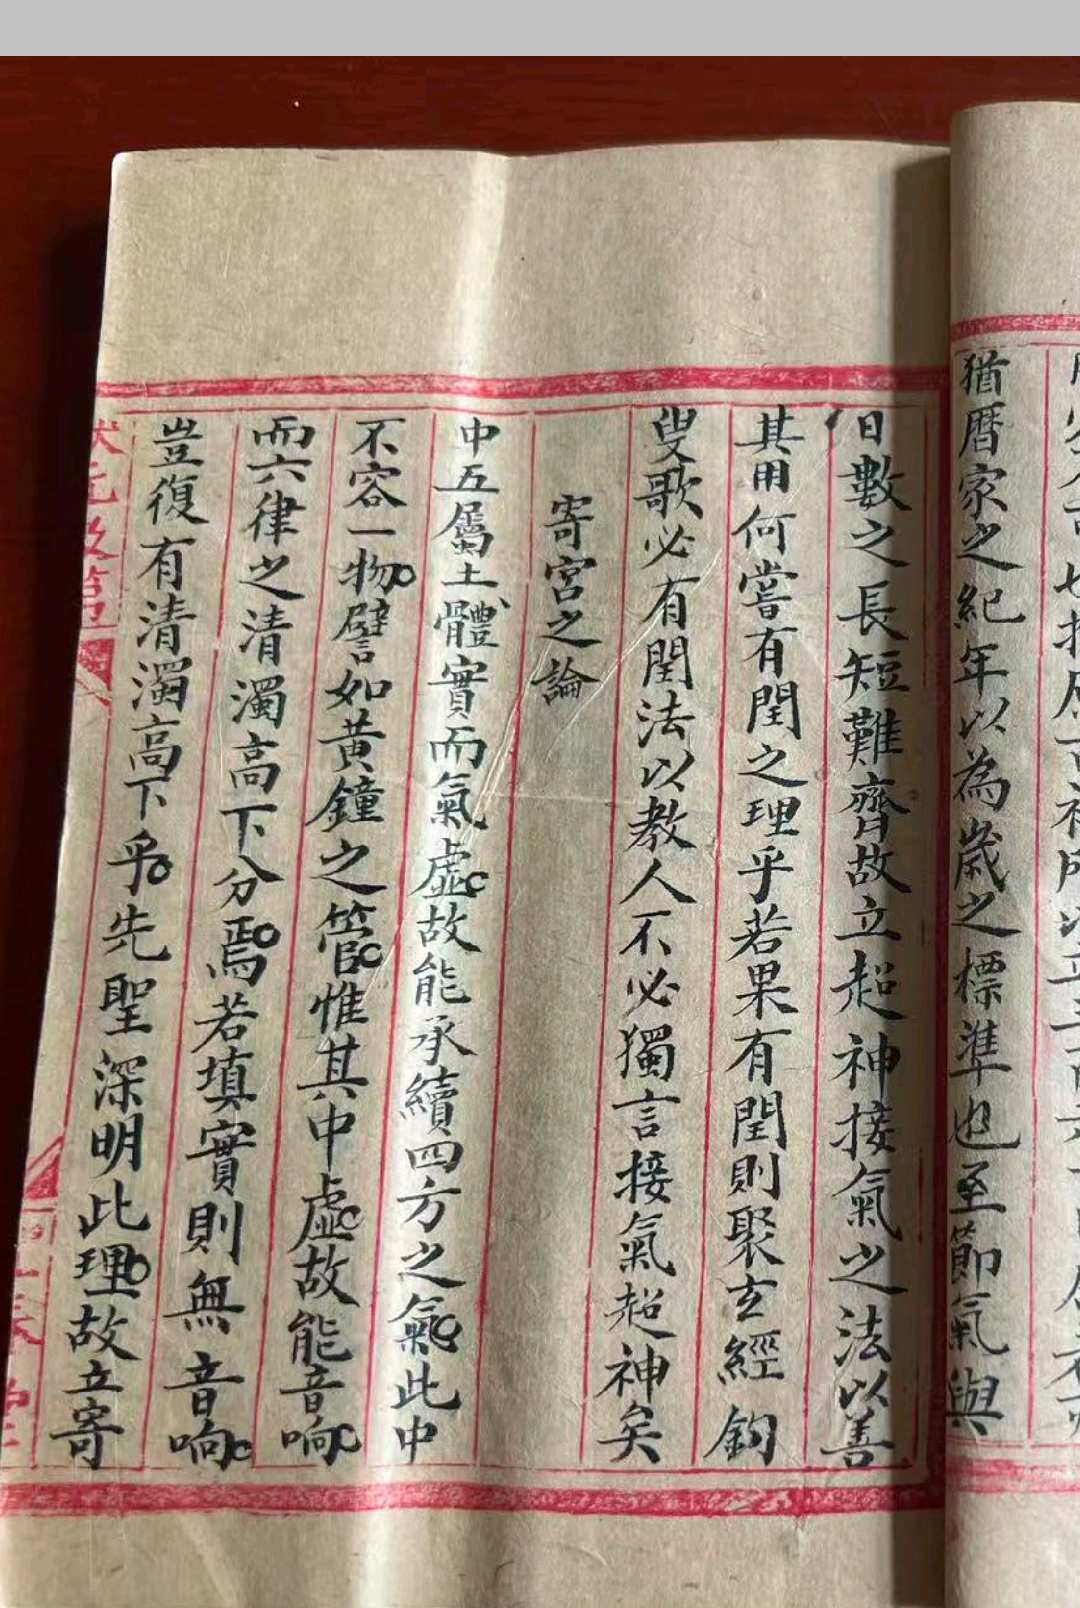 猶暦家之紀年以為歲之標準也至節氣與
日數之長短難齊故立超神接氣之法以善
其用何嘗有閏之理乎若果有閏則聚玄經鈞
叟歌必有閏法以教人不必獨言接氣超神矣
寄宮之論
中五屬土體實而氣虛故能承續四方之氣此中
不容一物譬如黃鐘之管惟其中虛故能音响
而六律之清濁高下分焉若填實則無音响
豈復有清濁高下乎先聖深明此理故立寄